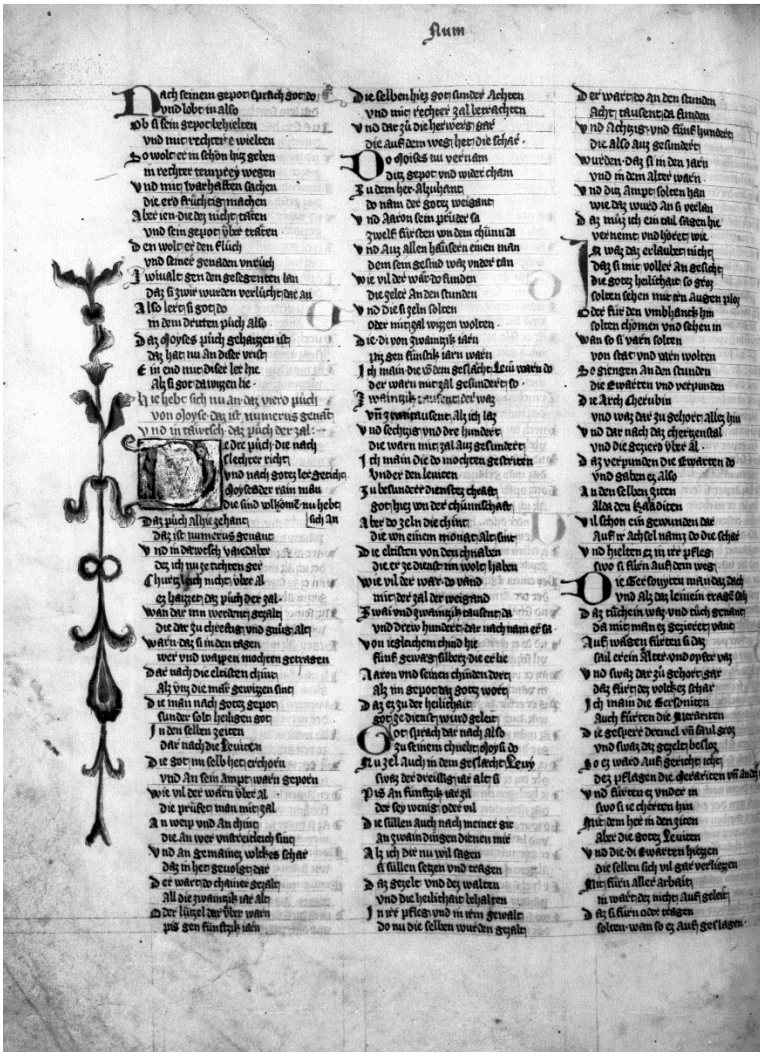 Num
Nach seinem gepot sprach got do
vnd lobt in also
Ob si sein gepot behielten
vnd mit rechter e wielten
So wolt er in schon hiz geben
in rechter temprey wegen
Vnd mit warhaften sachen
die erd früchtig machen
Aber ien die dez nicht taten
vnd sein gepot vber traten
Den wolt er den flüch
vnd seiner genaden vnrüch
Zwiualt gen den gesegenten lan
daz si zwir wurden verflücht dar an
Also lert si got do
in dem dritten püch also
Daz Moyses püch gehaizzen ist
daz hat nu an diser vrist
Ein end mit diser ler hie
Alz si got da wizzen lie
Hie hebt sich nu an daz vierd püch
von Moyse daz ist numerus genant
vnd in täwtsch daz püch der zal
Iedre püch die nach
slechter richt
Vnd nach gotez ler gericht
Moyses der rain man
die sind volkomen nu hebt
Daz püch alhie zehant
sich an
daz ist numerus genant
Vnd in dawtsch
dez ich nu ze tichten ger
Churtzleich nicht vber al
ez haizzet daz püch der zal
Wan dar inn werdent gezalt
die dar zu chreftig vnd
Warn daz si in den tagen
wer vnd wappen mochten getragen
Dar nach die eltisten chint
Alz vns die mar gewizzen sint
Die man nach gotez gepot
sunder solt heiligen got
In den selben zeiten
dar nach die Leuiten
Die got im selb het erchorn
vnd An sein Ampt warn geporn
Wie vil der warn vber al
die prüfet man mit zal
An weip vnd An chint
die An wer vnstreitleich sint
Vnd An gemainez volckes schar
daz in het geuolgt dar
Der wart do chainer gezalt
All die zwainzik iar alt
Oder lützel dar vber warn
pis gen fünfzik iarn
Die selben hiez got sunder Achten
vnd mit rechter zal betrachten
Vnd dar zü die herwers gar
die auf dem weg het die schar
Do Moises nu vernam
ditz gepot vnd wider cham
Zu dem her Alzuhant
do nam der gotez weigant
Vnd Aaron sein prüder sa
zwelf fürsten von dem chünn da
Vnd Auz allen häusern einen man
dem sein gesind waz vnder tan
Wie vil der war do funden
die zeler An den stunden
Vnd die si zeln solten
oder mit zal wizzen wolten
Die di von zwainzik iarn
piz gen fünfzik iarn warn
Ich main die von dem geslächt Leui warn do
der warn mit zal gesundert so
Zwainzik tausent der waz
vnd zwai tausent alz ich laz
Vnd sechzig vnd dre hundert
die warn mit zal auz gesundert
Ich main die do mochten gestriten
vnder den leuiten
Zu besunder dienstez chraft
got hiez von der chünnschaft
Aber do zeln die chint
die von einem monat alt sint
Die eltisten von den chnaben
die er ze dienst im wolt haben
Wie vil der war do vand
mit der zal der weigand
Zwai vnd zwainzik tausent da
vnd drew hundert dar nach nam er sa
Von ieslachem chind hie
fünf gewag silbers die er lie
Aaron vnd seinen chinden dort
Alz im gepot daz gotez wort
Daz ez zu der heilichait
got ze dienst wurd geleit
Got sprach dar nach also
Zu seinem chnecht Moysi do
Nu zel Auch in dem geslacht Leuy
swaz der dreizzig iar alt si
Pis An fünfzik iar zal
der sey wenig oder vil
Die süllen auch nach meiner gir
an zwain dingen dienen mir
Alz ich dir nu wil sagen
si süllen setzen vnd tragen
Daz gezelt vnd dez walten
vnd die heilichait behalten
In irr pfleg vnd in irm gewalt
do nu die selben wurden gezalt
Der wart do an den stunden
Acht tausent da funden
Vnd Achtzig vnd fünf hundert
die also auz gesundert
Wurden daz si in den iarn
vnd in dem alter warn
Vnd ditz Ampt solten han
wie daz wurd An si verlan
Daz müz ich ein tail sagen hie
vernemt vnd höret wie
In waz daz erlaubet nicht
daz si mit voller An gesicht
die gotez heilichait so groz
solten sehen mit irn augen ploz
Oder für den vmbhanck hin
solten chomen vnd sehen in
Wan so si varn solten
von stat vnd varn wolten
So giengen An den stunden
die Ewarten vnd verpunden
Die Arch Cherubin
vnd waz dar zu gehort allez hin
Vnd dar nach daz cherzenstal
vnd die gezierd vber al
Daz verpunden die Ewarten do
vnd gaben ez also
An den selben ziten
Alda den Kaaditen
Vil schon ein gewunden dar
Auf ir Achsel namz do die schar
Vnd hielten ez in irr pfleg
swo si fürn auf dem weg
Die Gersonyten man daz dach
vnd Alz daz leinein tragen sach
Daz tüchein waz vnd tüch genant
da mit man ez gezieret vant
Auf wägen fürten si daz
sail erein Altar vnd opfer vaz
Vnd swaz dar zü gehort gar
daz fürt dez volckez schar
Ich main die Gersoniten
Auch fürten die Merariten
Die gespere dremel vnd saul groz
vnd swaz daz gezelt besloz
So ez ward auf gericht icht
dez pflagen die Merariten vnd
Vnd fürten ez vnder in
swo si cherten hin
Mit dem her in den ziten
Aber die gotez Leuiten
Vnd die di Ewarten hiezzen
die selben sich vil gar verliezzen
Mit fürn aller arbait
in wart dez nicht Auf geleit
Daz si fürn oder tragen
solten wan so ez Auf geslagen